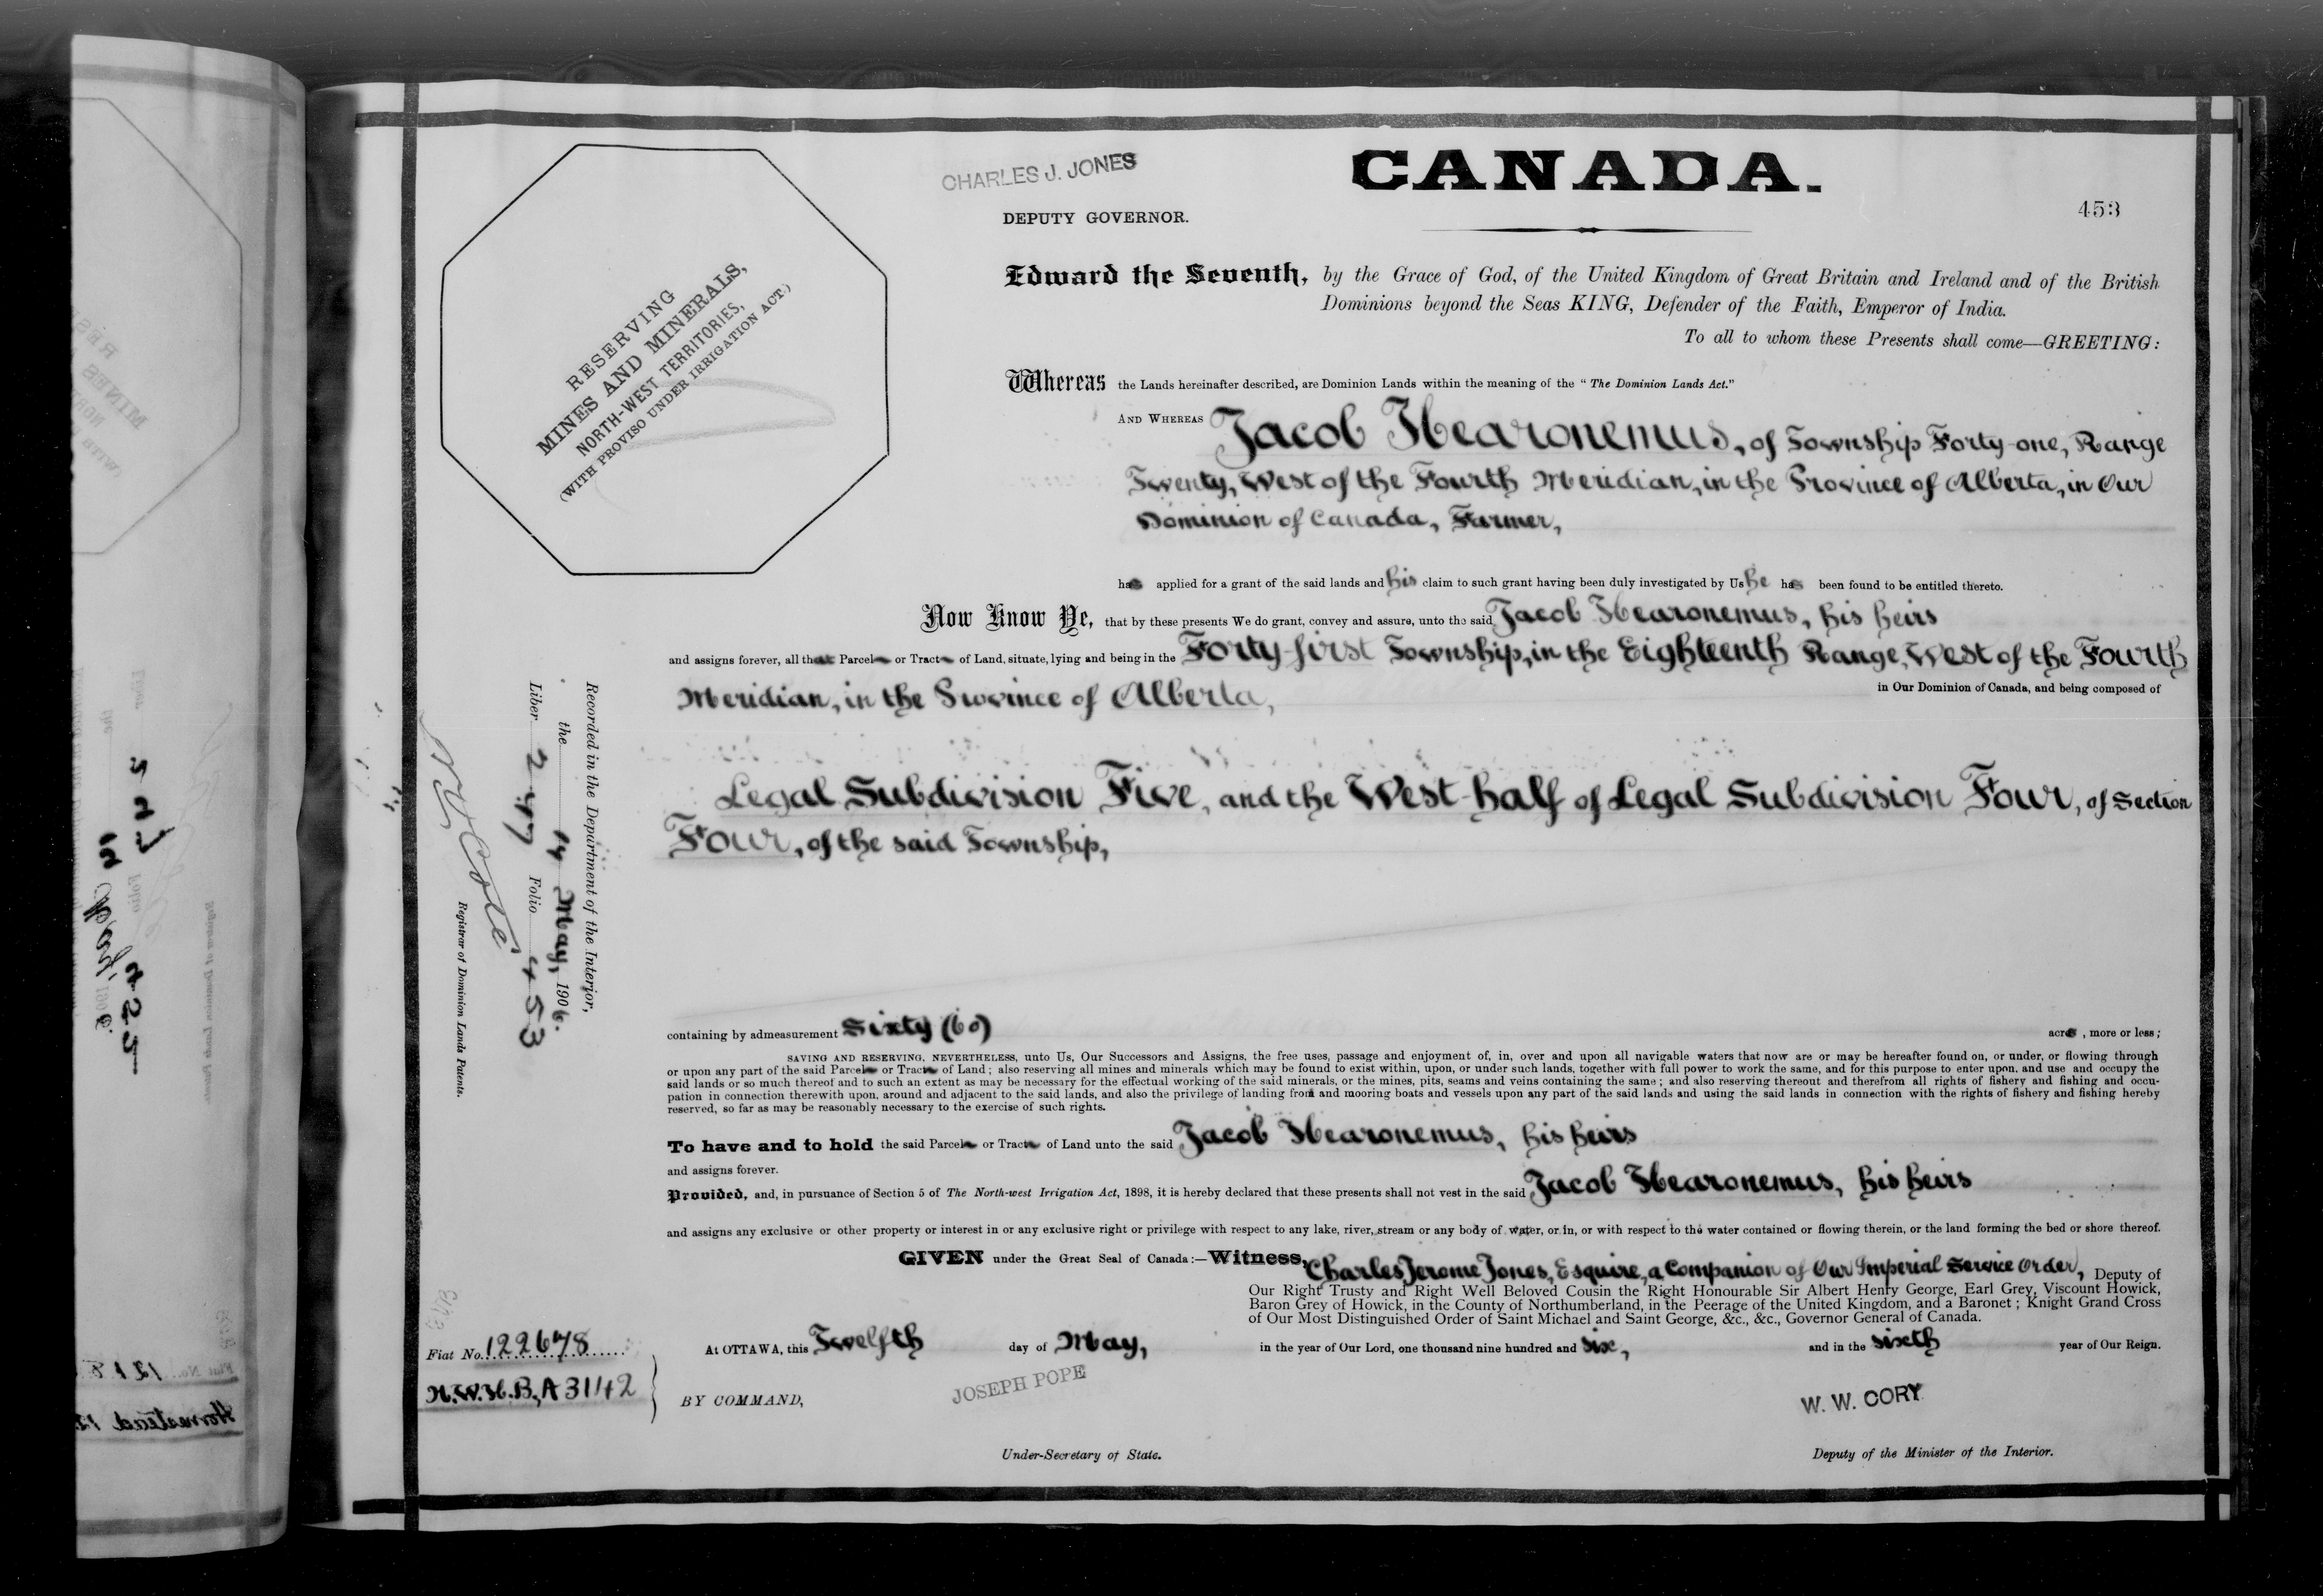 CHARLES J. JONES
CANADA.
DEPUTY GOVERNOR.
453
RESERVING
MINES AND MINERALS,
NORTH-WEST TERRITORIES,
(WITH PROVISO UNDER IRRIGATION ACT.)
Edward the Seventh, by the Grace of God, of the United Kingdom of Great Britain and Ireland and of the British
Dominions beyond the Seas KING, Defender of the Faith, Emperor of India.
To all to whom these Presents shall come—GREETING:
Whereas the Lands hereinafter described, are Dominion Lands within the meaning of the "The Dominion Lands Act."
AND WHEREAS Jacob Hearonemus, of Township Forty-one, Range
Twenty, West of the Fourth Meridian, in the Province of Alberta, in Our
Dominion of Canada, Farmer,
has applied for a grant of the said lands and his claim to such grant having been duly investigated by Us he has been found to be entitled thereto.
Now Know Ye, that by these presents We do grant, convey and assure, unto the said Jacob Hearonemus, his heirs
and assigns forever, all that Parcel or Tract of Land, situate, lying and being in the Forty-first Township, in the Eighteenth Range, West of the Fourth
Meridian, in the Province of Alberta,
in Our Dominion of Canada, and being composed of
Legal Subdivision Five, and the West-half of Legal Subdivision Four, of Section
Four, of the said Township,
containing by admeasurement Sixty (60) acres, more or less;
SAVING AND RESERVING, NEVERTHELESS, unto Us, Our Successors and Assigns, the free uses, passage and enjoyment of, in, over and upon all navigable waters that now are or may be hereafter found on, or under, or flowing through
or upon any part of the said Parcel or Tract of Land; also reserving all mines and minerals which may be found to exist within, upon, or under such lands, together with full power to work the same, and for this purpose to enter upon, and use and occupy the
said lands or so much thereof and to such an extent as may be necessary for the effectual working of the said minerals, or the mines, pits, seams and veins containing the same; and also reserving thereout and therefrom all rights of fishery and fishing and occu-
pation in connection therewith upon, around and adjacent to the said lands, and also the privilege of landing from and mooring boats and vessels upon any part of the said lands and using the said lands in connection with the rights of fishery and fishing hereby
reserved, so far as may be reasonably necessary to the exercise of such rights.
To have and to hold the said Parcel or Tract of Land unto the said Jacob Hearonemus, his heirs
and assigns forever.
Provided, and, in pursuance of Section 5 of The North-west Irrigation Act, 1898, it is hereby declared that these presents shall not vest in the said Jacob Hearonemus, his heirs
and assigns any exclusive or other property or interest in or any exclusive right or privilege with respect to any lake, river, stream or any body of water, or in, or with respect to the water contained or flowing therein, or the land forming the bed or shore thereof.
GIVEN under the Great Seal of Canada:—Witness, Charles Jerome Jones, Esquire, a Companion of Our Imperial Service Order, Deputy of
Our Right Trusty and Right Well Beloved Cousin the Right Honourable Sir Albert Henry George, Earl Grey, Viscount Howick,
Baron Grey of Howick, in the County of Northumberland, in the Peerage of the United Kingdom, and a Baronet; Knight Grand Cross
of Our Most Distinguished Order of Saint Michael and Saint George, &c., &c., Governor General of Canada.
At OTTAWA, this Twelfth day of May, in the year of Our Lord, one thousand nine hundred and six, and in the sixth year of Our Reign.
BY COMMAND,
JOSEPH POPE
Under-Secretary of State.
W. W. CORY
Deputy of the Minister of the Interior.
Fiat No. 122678
N.W.H.B, A 3142
Recorded in the Department of the Interior,
the 14 May, 1906.
Liber 247 Folio 453
N O Coté
Registrar of Dominion Lands Patents.